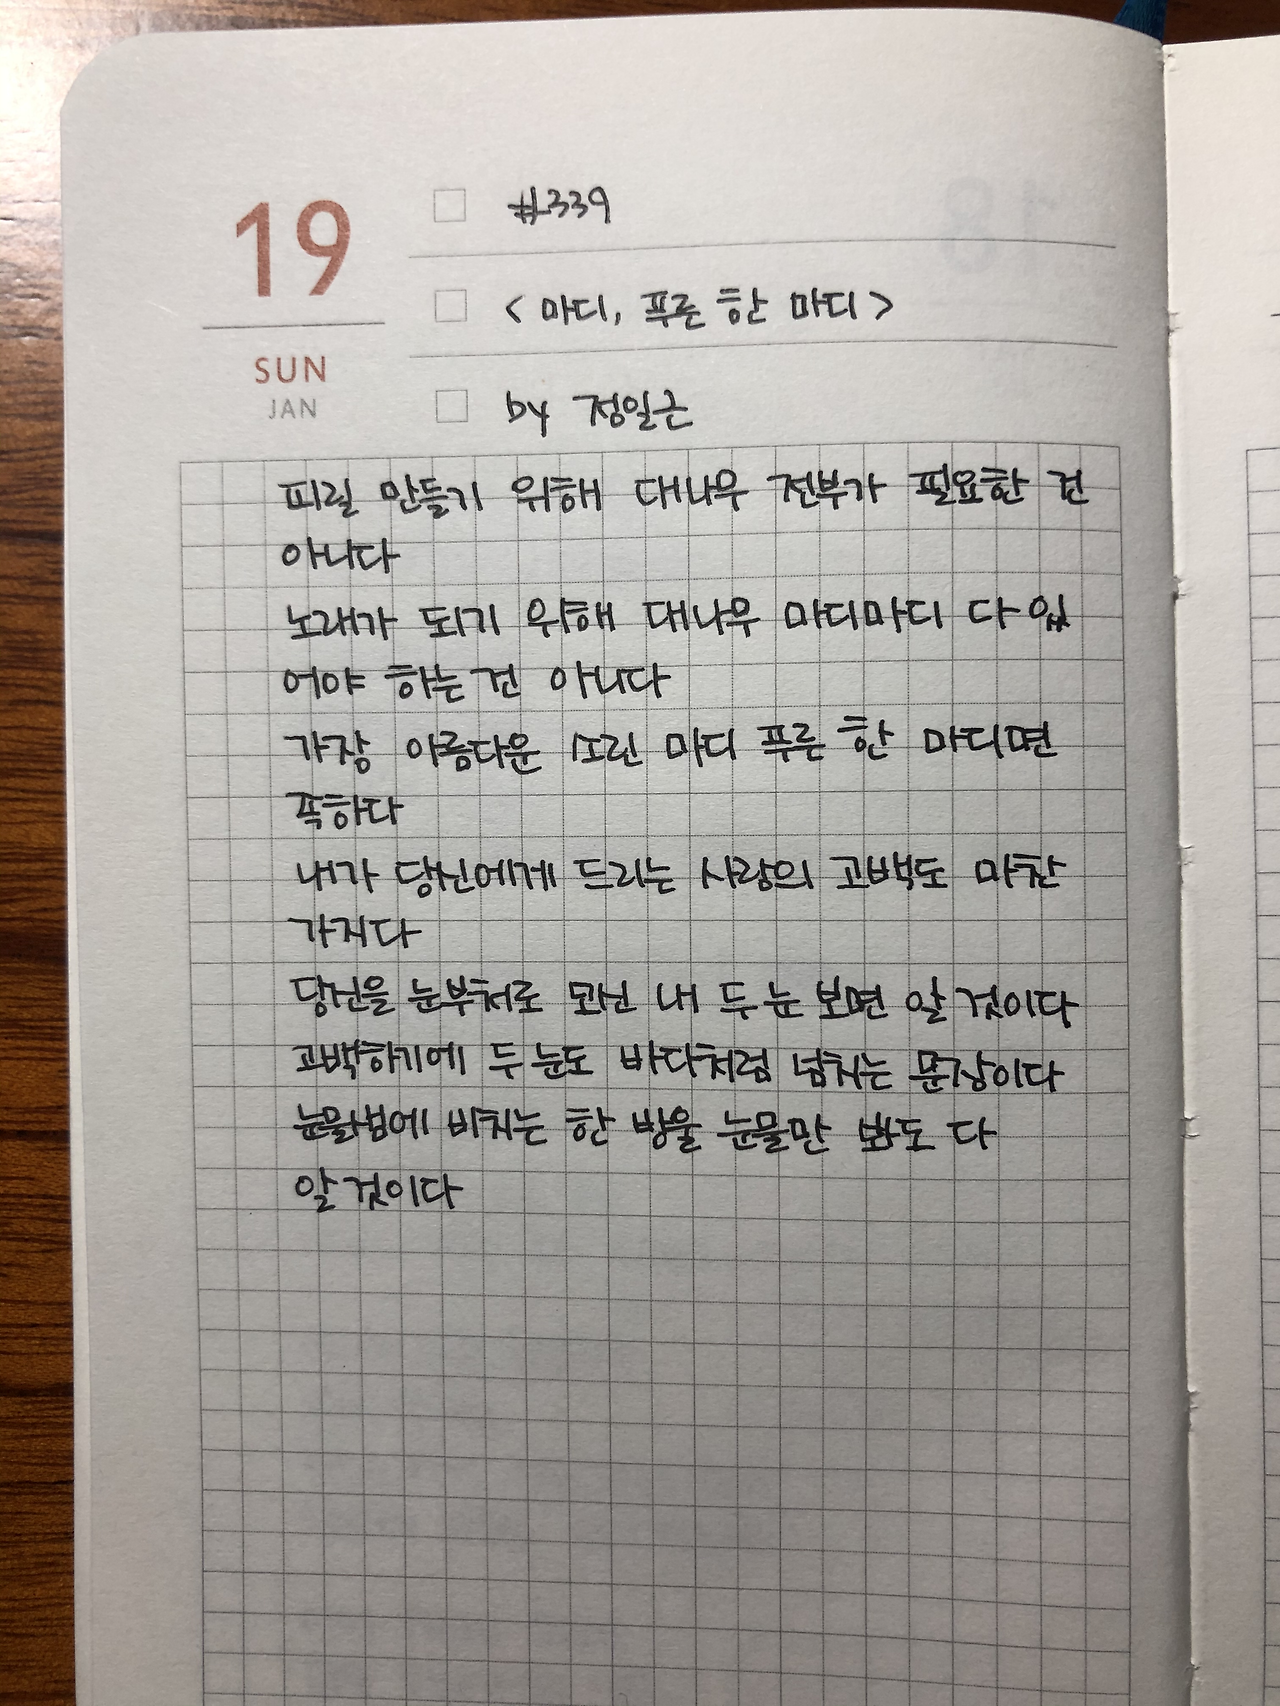 19
SUN
JAN
#339
< 마디, 푸른 한 마디 >
by 정일근
피릴 만들기 위해 대나무 전부가 필요한 건
아니다
노래가 되기 위해 대나무 마디마디 다 있
어야 하는 건 아니다
가장 아름다운 소린 마디 푸른 한 마디면
족하다
내가 당신에게 드리는 사랑의 고백도 마찬
가지다
당신을 눈부처로 모신 내 두 눈 보면 알 것이다
고백하기에 두 눈도 바다처럼 넘치는 문장이다
눈물샘에 비치는 한 방울 눈물만 봐도 다
알 것이다